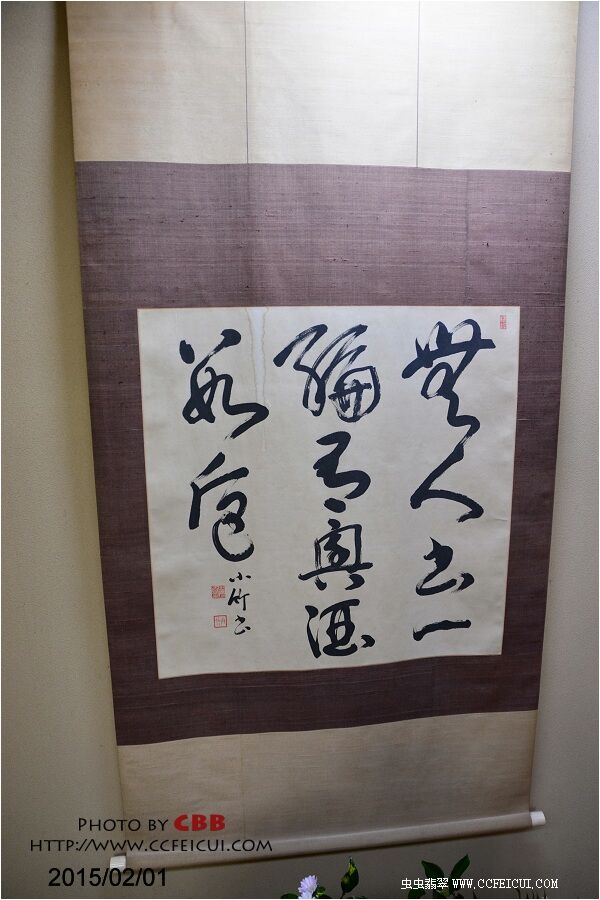 無人書一
編有興酒
數巵
小竹書
PHOTO BY CBB
HTTP://WWW.CCFEICUI.COM
2015/02/01
虫虫翡翠 WWW.CCFEICUI.COM